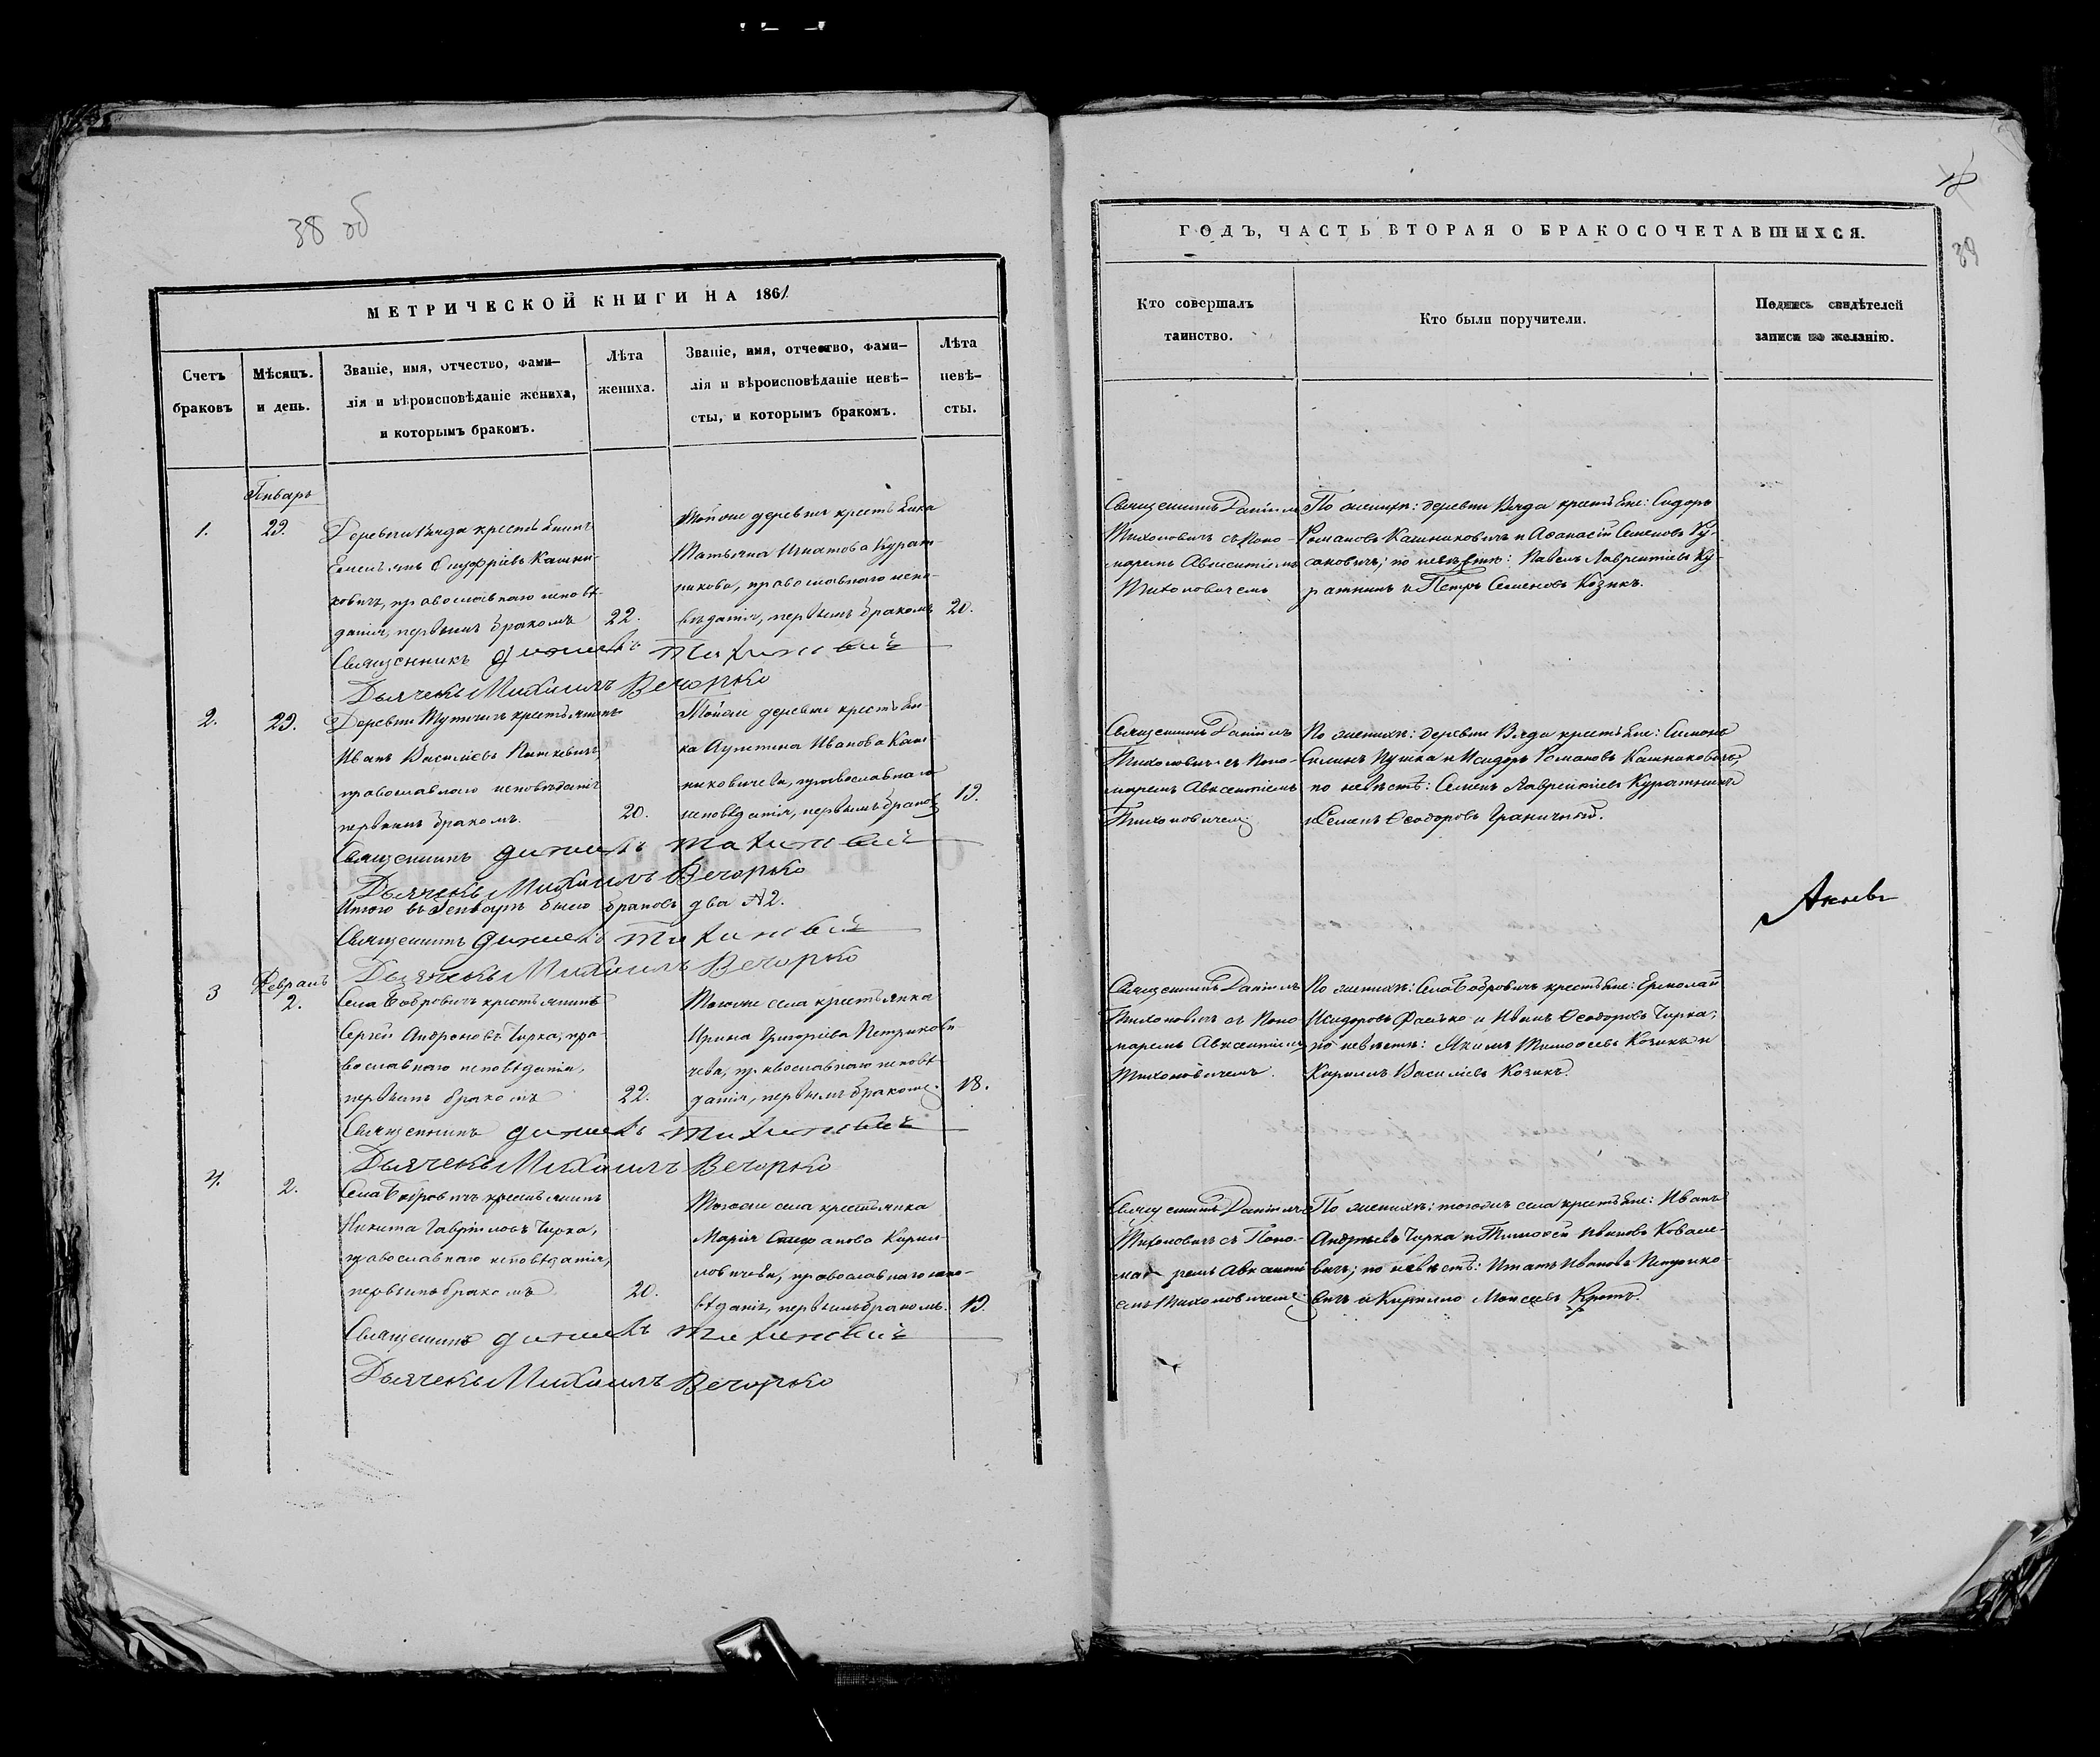 38 об
МЕТРИЧЕСКОЙ КНИГИ НА 1861
Счетъ браковъ
Мѣсяцъ. и день.
Званіе, имя, отчество, фами-
лія и вѣроисповѣданіе жениха,
и которымъ бракомъ.
Лѣта
жениха.
Званіе, имя, отчество, фами-
лія и вѣроисповѣданіе невѣ-
сты, и которымъ бракомъ.
Лѣта
невѣ-
сты.
Январь
1.
29.
Деревни Вяда крестьянинъ
Емельянъ Онуфріевъ Кашни-
ковичъ, православнаго исповѣ-
данія, первымъ бракомъ
22.
Тойже деревни крестьянка
Татьяна Игнатова Курат-
никова, православнаго испо-
вѣданія, первымъ бракомъ
20.
Священникъ Даніилъ Тихоновичъ
Дьячекъ Михаилъ Вечорко
2.
29.
Деревни крестьянинъ
Иванъ Васильевъ
православнаго исповѣданія
первымъ бракомъ.
20.
Тойже деревни крестьян-
ка Іустина Иванова Каш-
никовичева, православнаго
исповѣданія, первымъ бракомъ
19.
Священникъ Даніилъ Тихоновичъ
Дьячекъ Михаилъ Вечорко
Итого въ Январѣ было браковъ два № 2.
Священникъ Даніилъ Тихоновичъ
Дьячекъ Михаилъ Вечорко
Февраль
3
2.
Села Бобровичъ крестьянинъ
Сергѣй Андроновъ Чирка, пра-
вославнаго исповѣданія,
первымъ бракомъ
22.
Тогоже села крестьянка
Ирина Григоріева Петрикови-
чева, православнаго исповѣ-
данія, первымъ бракомъ.
18.
Священникъ Даніилъ Тихоновичъ
Дьячекъ Михаилъ Вечорко
4.
2.
Села Бобровичъ крестьянинъ
Никита Гавріиловъ Чирка,
православнаго исповѣданія,
первымъ бракомъ
20.
Тогоже села крестьянка
Марія Стефанова Кирил-
ловичева, православнаго испо-
вѣданія, первымъ бракомъ.
19.
Священникъ Даніилъ Тихоновичъ
Дьячекъ Михаилъ Вечорко
39
ГОДЪ, ЧАСТЬ ВТОРАЯ О БРАКОСОЧЕТАВШИХСЯ.
Кто совершалъ
таинство.
Кто были поручители.
Подпись свидѣтелей
записи по желанію.
Священникъ Даніилъ
Тихоновичъ съ Поно-
маремъ Авксентіемъ
Тихоновичемъ
По женихѣ: деревни Вяда крестьяне: Сидоръ
Романовъ Кашниковичъ и Аѳанасій Семеновъ Ру-
саковичъ; по невѣстѣ: Павелъ Лаврентіевъ Ку-
ратникъ и Петръ Семеновъ Козикъ.
Священникъ Даніилъ
Тихоновичъ съ Поно-
маремъ Авксентіемъ
Тихоновичемъ
По женихѣ: деревни Вяда крестьяне: Симонъ
Силинъ Пушка и Исидоръ Романовъ Кашниковичъ,
по невѣстѣ: Семенъ Лаврентіевъ Куратникъ
и Семенъ Ѳеодоровъ Граничный.
Священникъ Даніилъ
Тихоновичъ съ Поно-
маремъ Авксентіемъ
Тихоновичемъ.
По женихѣ: Села Бобровичъ крестьяне: Ермолай
Исидоровъ и Иванъ Ѳеодоровъ Чирка;
по невѣстѣ: Якимъ Тимоѳеевъ Козикъ и
Кириллъ Васильевъ Козикъ.
Священникъ Даніилъ
Тихоновичъ съ Поно-
маремъ Авксенті-
емъ Тихоновичемъ
По женихѣ: тогоже села крестьяне: Иванъ
Андреевъ Чирка и Тимоѳей Ивановъ Ковале-
вичъ; по невѣстѣ: Игнатъ Ивановъ Петрико-
вичъ и Кирилло Моисеевъ Кротъ.